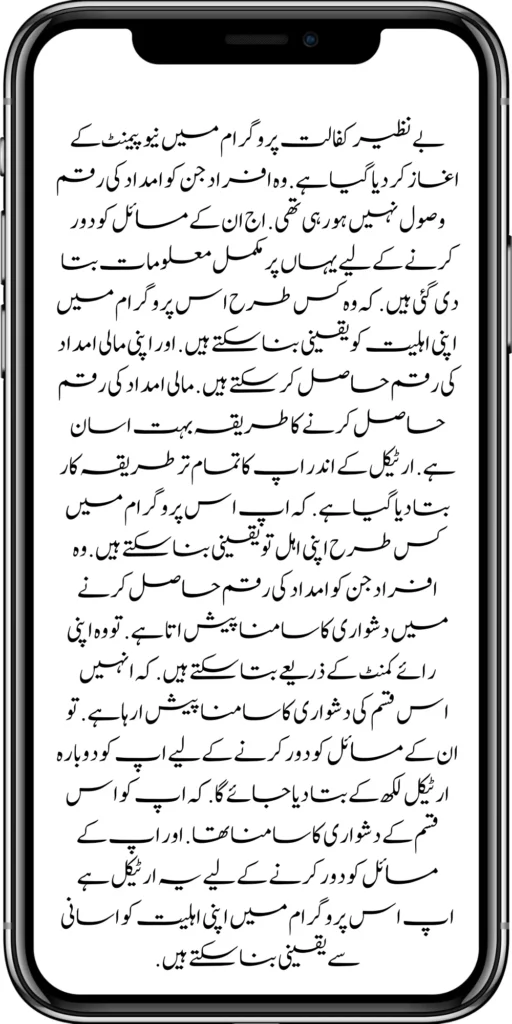 بے نظیر کفالت پروگرام میں نیو پیمنٹ کے
اغاز کر دیا گیا ہے. وہ افراد جن کو امداد کی رقم
وصول نہیں ہو رہی تھی. اج ان کے مسائل کو دور
کرنے کے لیے یہاں پر مکمل معلومات بتا
دی گئی ہیں. کہ وہ کس طرح اس پروگرام میں
اپنی اہلیت کو یقینی بنا سکتے ہیں. اور اپنی مالی امداد
کی رقم حاصل کر سکتے ہیں. مالی امداد کی رقم
حاصل کرنے کا طریقہ بہت اسان
ہے. ارٹیکل کے اندر اپ کا تمام تر طریقہ کار
بتا دیا گیا ہے. کہ اپ اس پروگرام میں
کس طرح اپنی اہل تو یقینی بنا سکتے ہیں. وہ
افراد جن کو امداد کی رقم حاصل کرنے
میں دشواری کا سامنا پیش اتا ہے. تو وہ اپنی
رائے کمنٹ کے ذریعے بتا سکتے ہیں. کہ انہیں
اس قسم کی دشواری کا سامنا پیش ا رہا ہے. تو
ان کے مسائل کو دور کرنے کے لیے اپ کو دوبارہ
ارٹیکل لکھ کے بتا دیا جائے گا. کہ اپ کو اس
قسم کے دشواری کا سامنا تھا. اور اپ کے
مسائل کو دور کرنے کے لیے یہ ارٹیکل ہے
اپ اس پروگرام میں اپنی اہلیت کو اسانی
سے یقینی بنا سکتے ہیں.